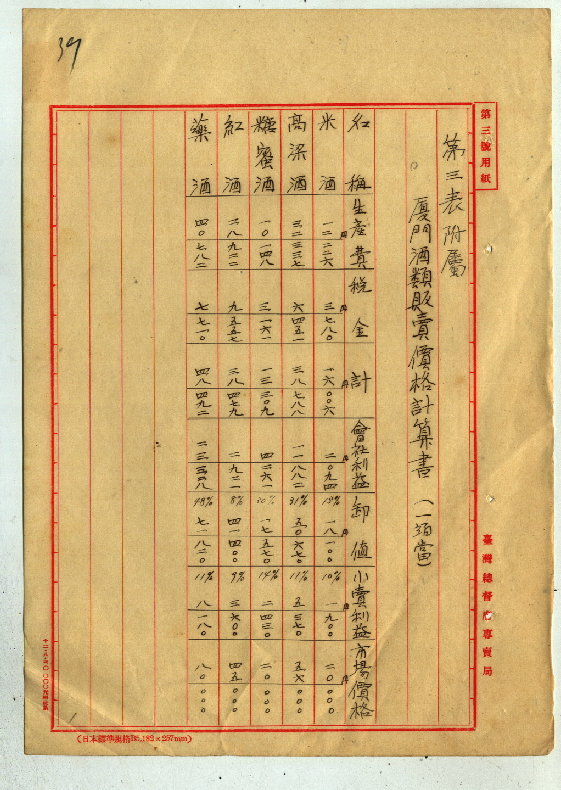 39
第三號用紙
第三表附屬
廈門酒類販賣價格計算書
名稱 生產費 稅金 計 會社利益 卸值 小賣利益 市場價格
米酒 一二二二六 三七八〇 一六〇〇六 二〇九四 13% 一八一〇〇 10% 一九〇〇 二〇〇〇〇
高梁酒 三二三三七 六四五一 三八七八八 一一八八二 31% 五〇六七〇 11% 五三七〇 五六〇〇〇
糖蜜酒 一〇一四八 三一六一 一三三〇九 四二六一 30% 一七五七〇 14% 二四三〇 二〇〇〇〇
紅酒 二八九二二 九五五七 三八四七九 二九二一 8% 四一四〇〇 9% 三六〇〇 四五〇〇〇
藥酒 四〇七八二 七七一〇 四八四九二 二三三二八 48% 七一八二〇 11% 八一八〇 八〇〇〇〇
臺灣總督府專賣局
(日本標準規格B5.182×257mm)